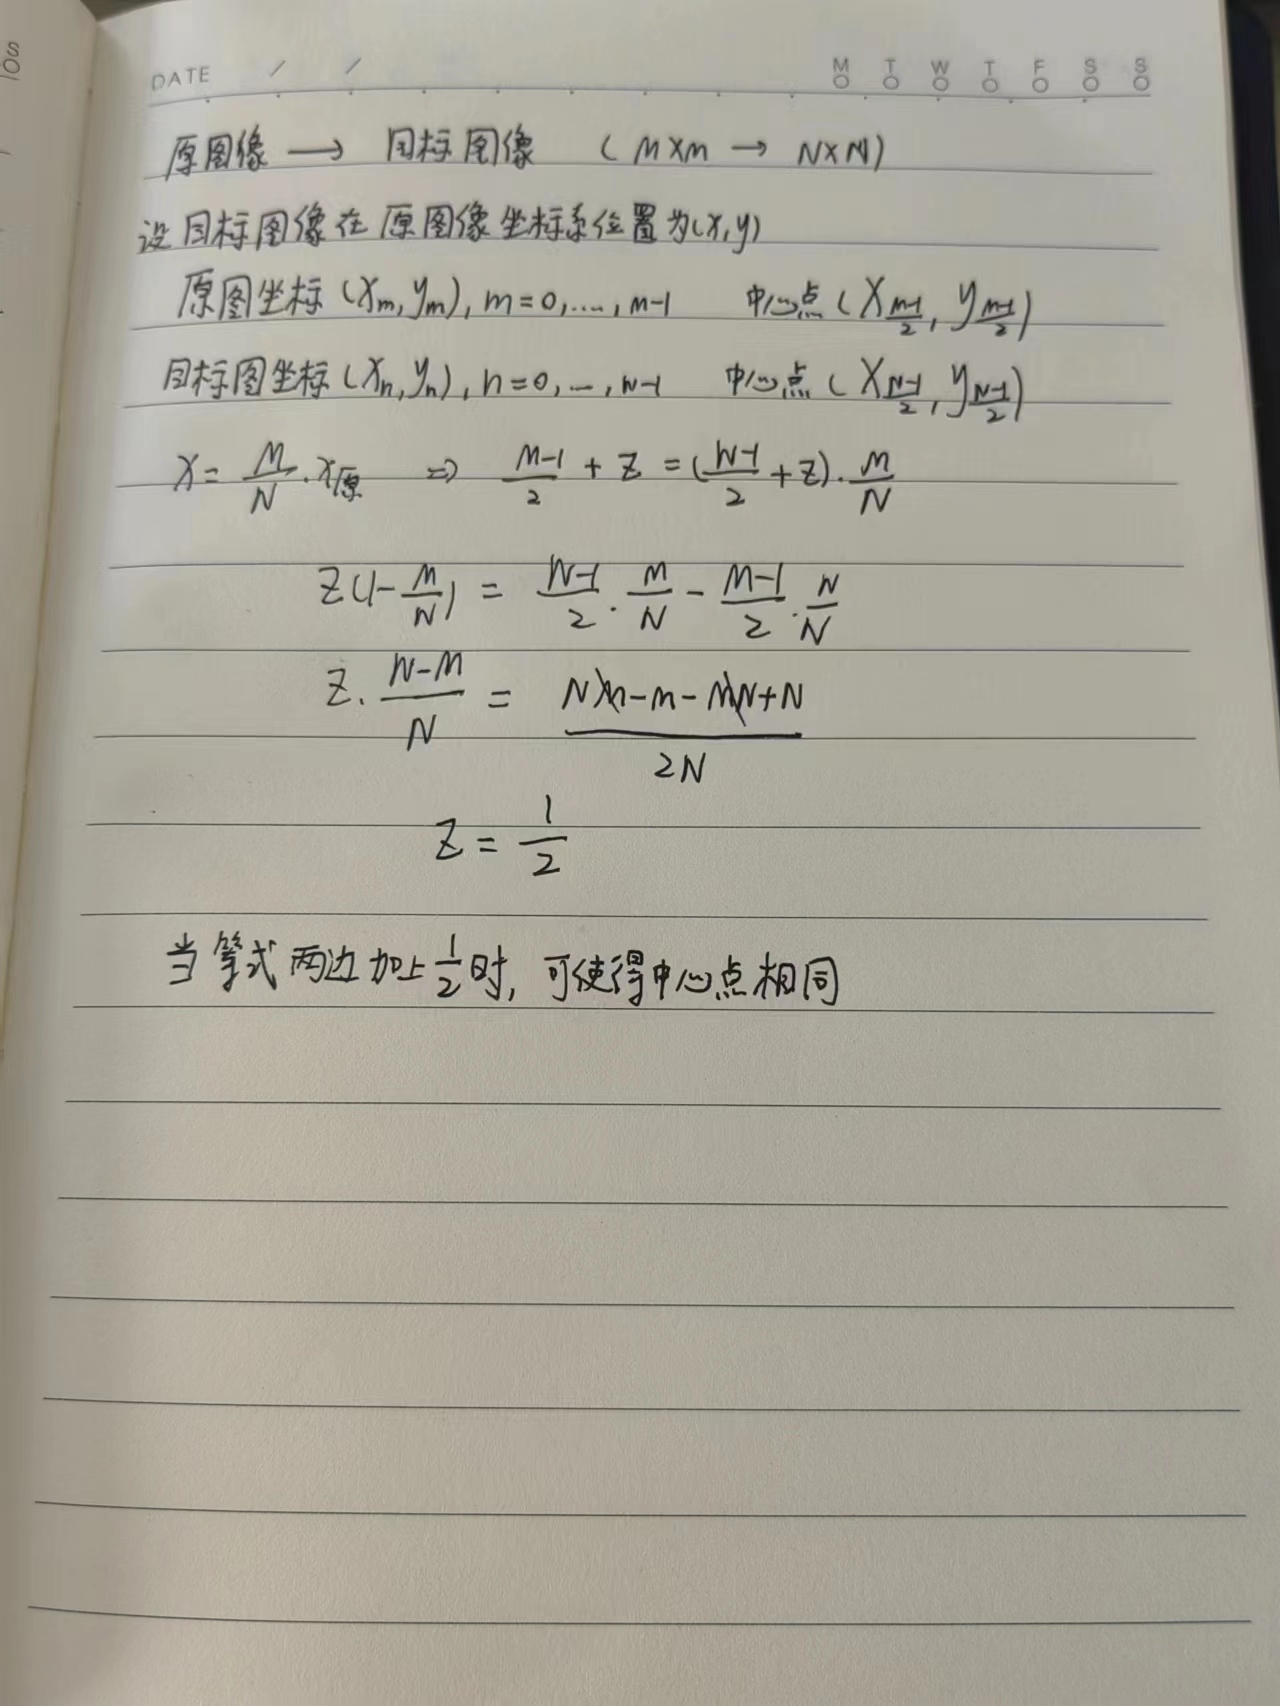 DATE / / M T W T F S S
原图像 → 目标图像 (M×M → N×N)
设目标图像在原图像坐标系位置为(x,y)
原图坐标(Xm,ym), m=0,....,M-1 中心点(X(M-1)/2, y(M-1)/2)
目标图坐标(Xn,yn), n=0,...,N-1 中心点(X(N-1)/2, y(N-1)/2)
X = M/N · x原 ⇒ (M-1)/2 + Z = ((N-1)/2 + Z) · M/N
Z(1-M/N) = (N-1)/2 · M/N - (M-1)/2 · N/N
Z · (N-M)/N = (NM-M-MN+N)/2N
Z = 1/2
当等式两边加上1/2时, 可使得中心点相同